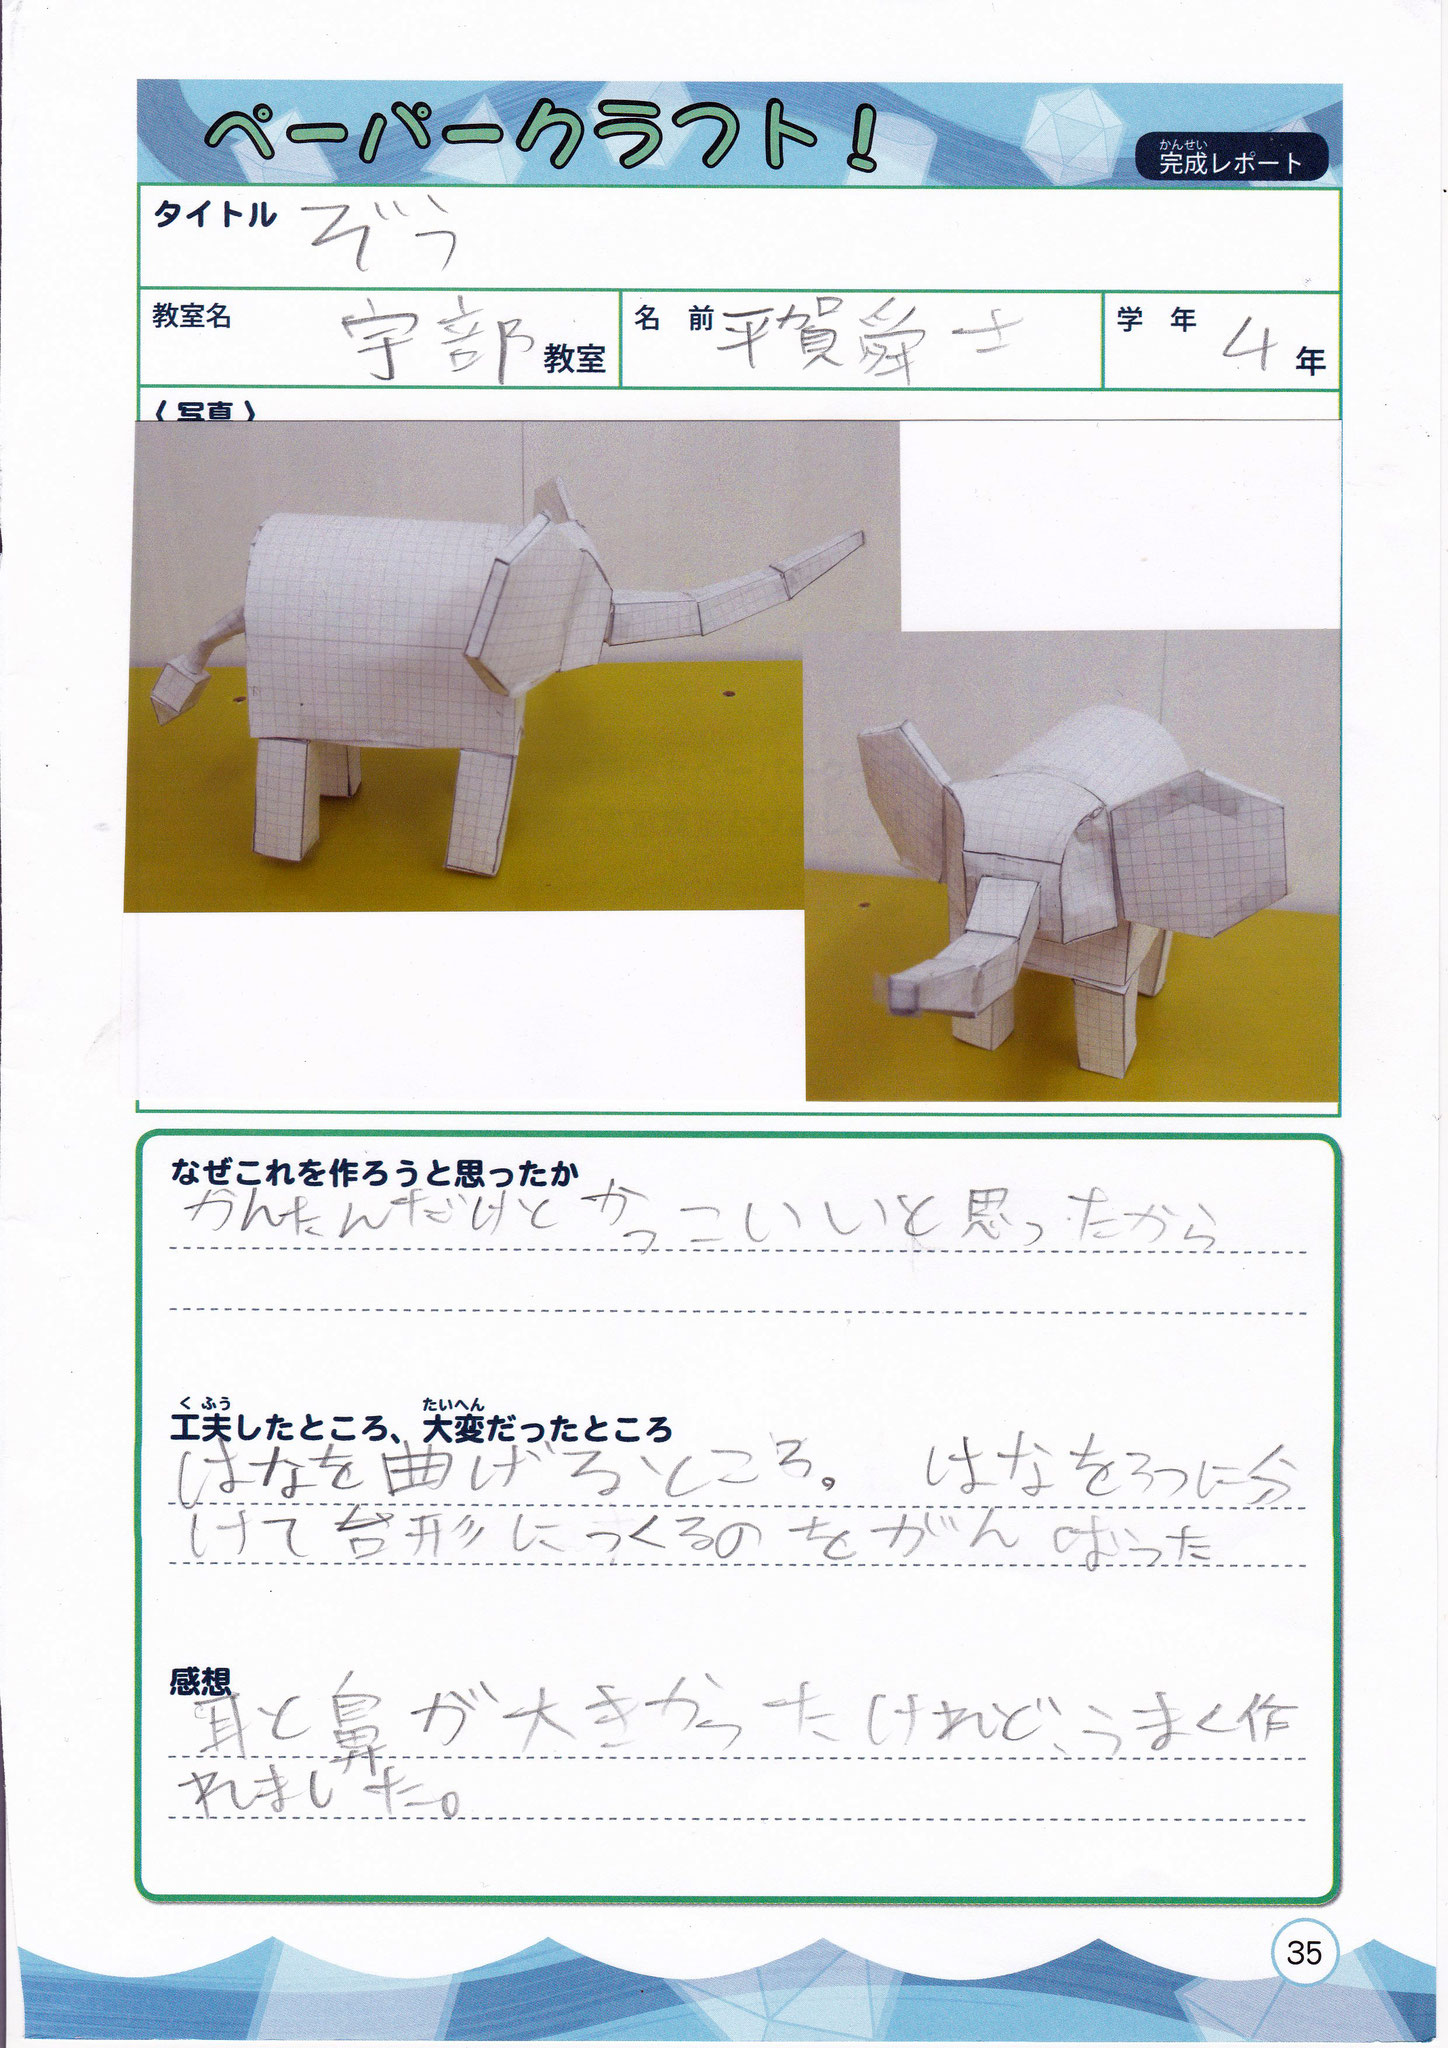 ペーパークラフト!
かんせい
完成レポート
タイトル ぞう
教室名 宇部 教室 名 前 平賀舜士 学 年 4 年
〈写真〉
なぜこれを作ろうと思ったか
かんたんだけどかっこいいと思ったから
くふう たいへん
工夫したところ、大変だったところ
はなを曲げるところ。 はなを3つに分
けて台形につくるのをがんばった
感想
耳と鼻が大きかったけれど、うまく作
れました。
35